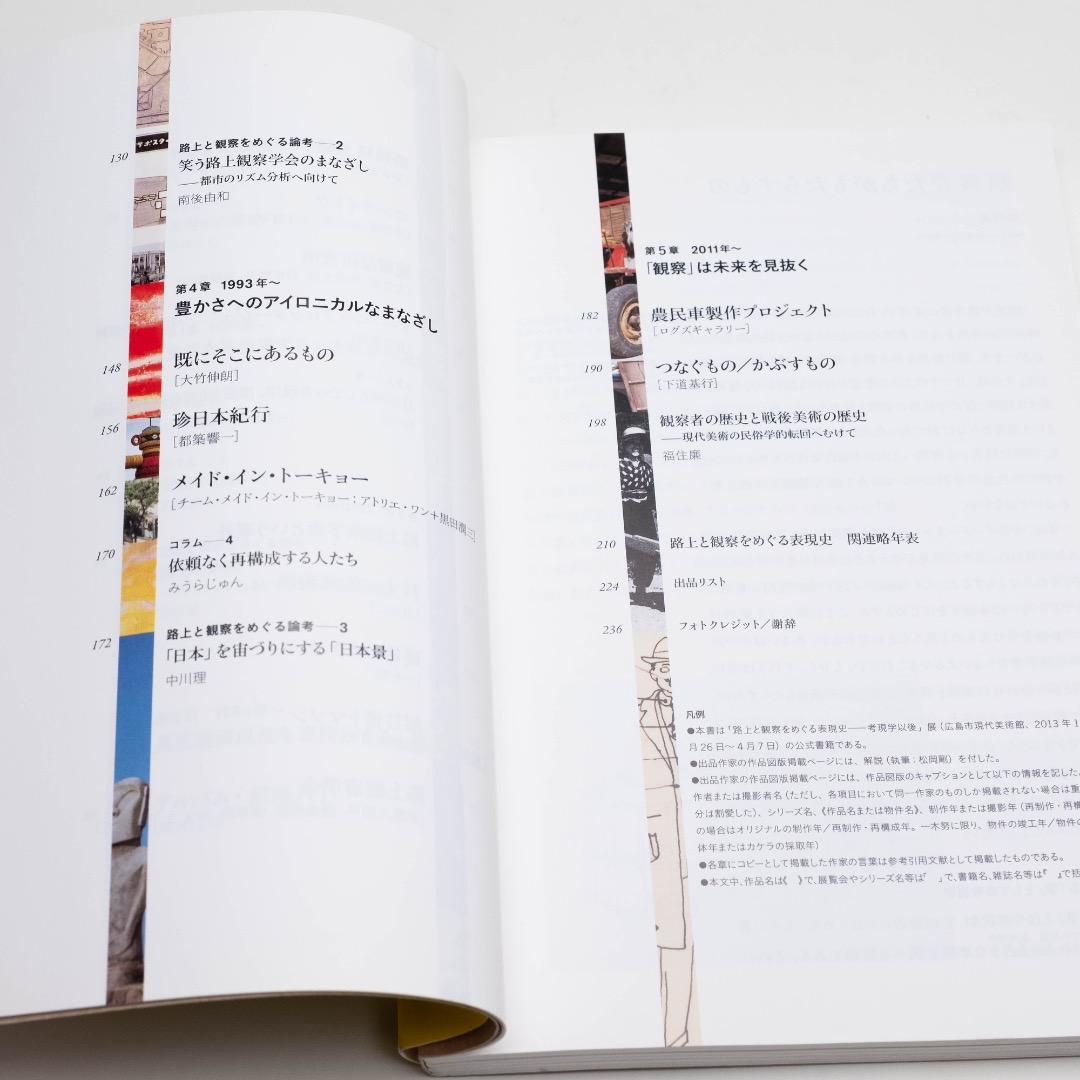 ラポスター
130
路上と観察をめぐる論考──2
笑う路上観察学会のまなざし
──都市のリズム分析へ向けて
南後由和
第4章 1993年〜
豊かさへのアイロニカルなまなざし
148
既にそこにあるもの
［大竹伸朗］
156
珍日本紀行
［都築響一］
162
メイド・イン・トーキョー
［チーム・メイド・イン・トーキョー：アトリエ・ワン＋黒田潤三］
170
コラム──4
依頼なく再構成する人たち
みうらじゅん
172
路上と観察をめぐる論考──3
「日本」を宙づりにする「日本景」
中川理
第5章 2011年〜
「観察」は未来を見抜く
182
農民車製作プロジェクト
［ログズギャラリー］
190
つなぐもの／かぶすもの
［下道基行］
198
観察者の歴史と戦後美術の歴史
──現代美術の民俗学的転回へむけて
福住廉
210
路上と観察をめぐる表現史 関連略年表
224
出品リスト
236
フォトクレジット／謝辞
凡例
●本書は「路上と観察をめぐる表現史──考現学以後」展（広島市現代美術館、2013年1
月26日〜4月7日）の公式書籍である。
●出品作家の作品図版掲載ページには、解説（執筆：松岡剛）を付した。
●出品作家の作品図版掲載ページには、作品図版のキャプションとして以下の情報を記した。
作者または撮影者名（ただし、各項目において同一作家のものしか掲載されない場合は重
分は割愛した）、シリーズ名、《作品名または物件名》、制作年または撮影年（再制作・再構
の場合はオリジナルの制作年／再制作・再構成年。一木努に限り、物件の竣工年／物件の
体年またはカケラの採取年）
●各章にコピーとして掲載した作家の言葉は参考引用文献として掲載したものである。
●本文中、作品名は《 》で、展覧会やシリーズ名等は「 」で、書籍名、雑誌名等は『 』で括